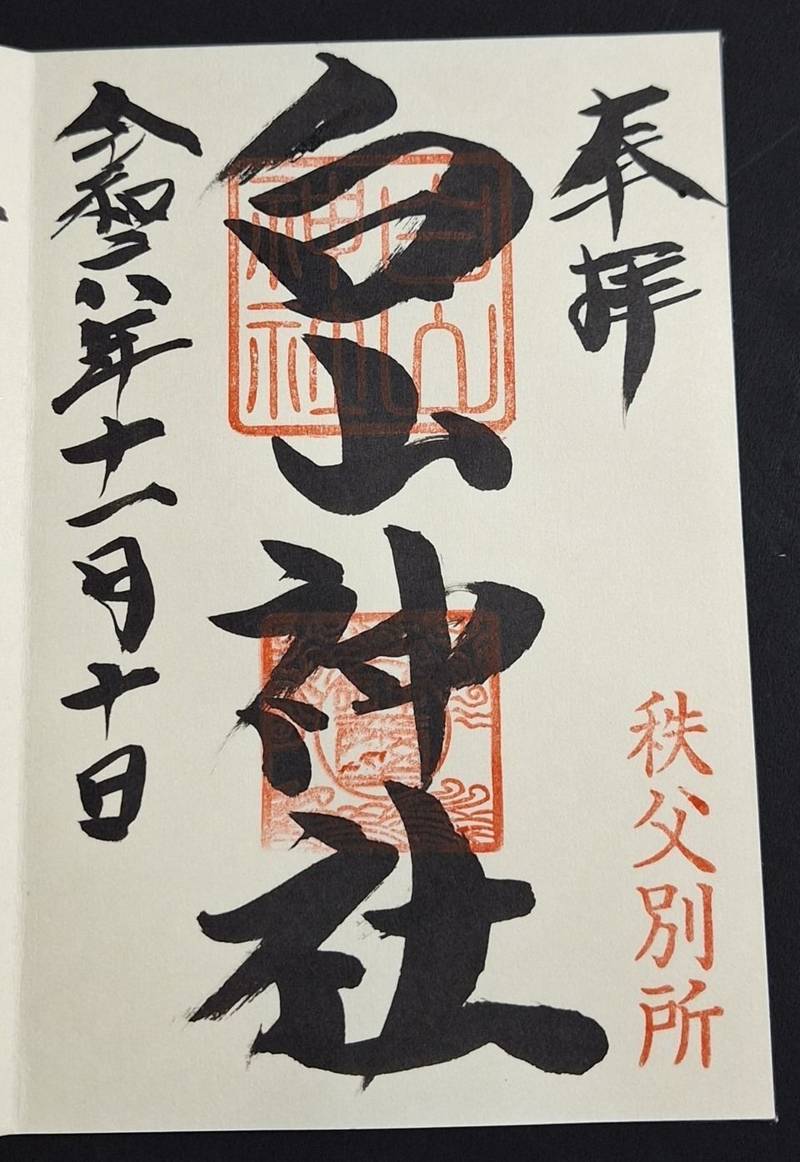 奉拝
秩父別所
白山神社
白山
神社
令和六年十一月十日